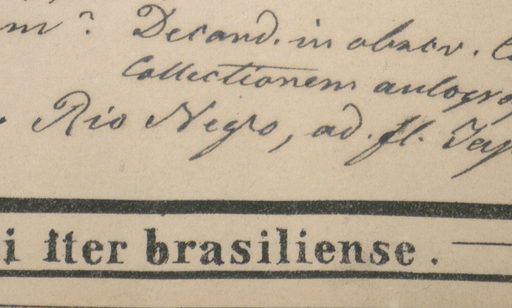 m? Decand. in observ.
Collectionem autogr
Rio Negro, ad. fl. Jap
i Iter brasiliense.